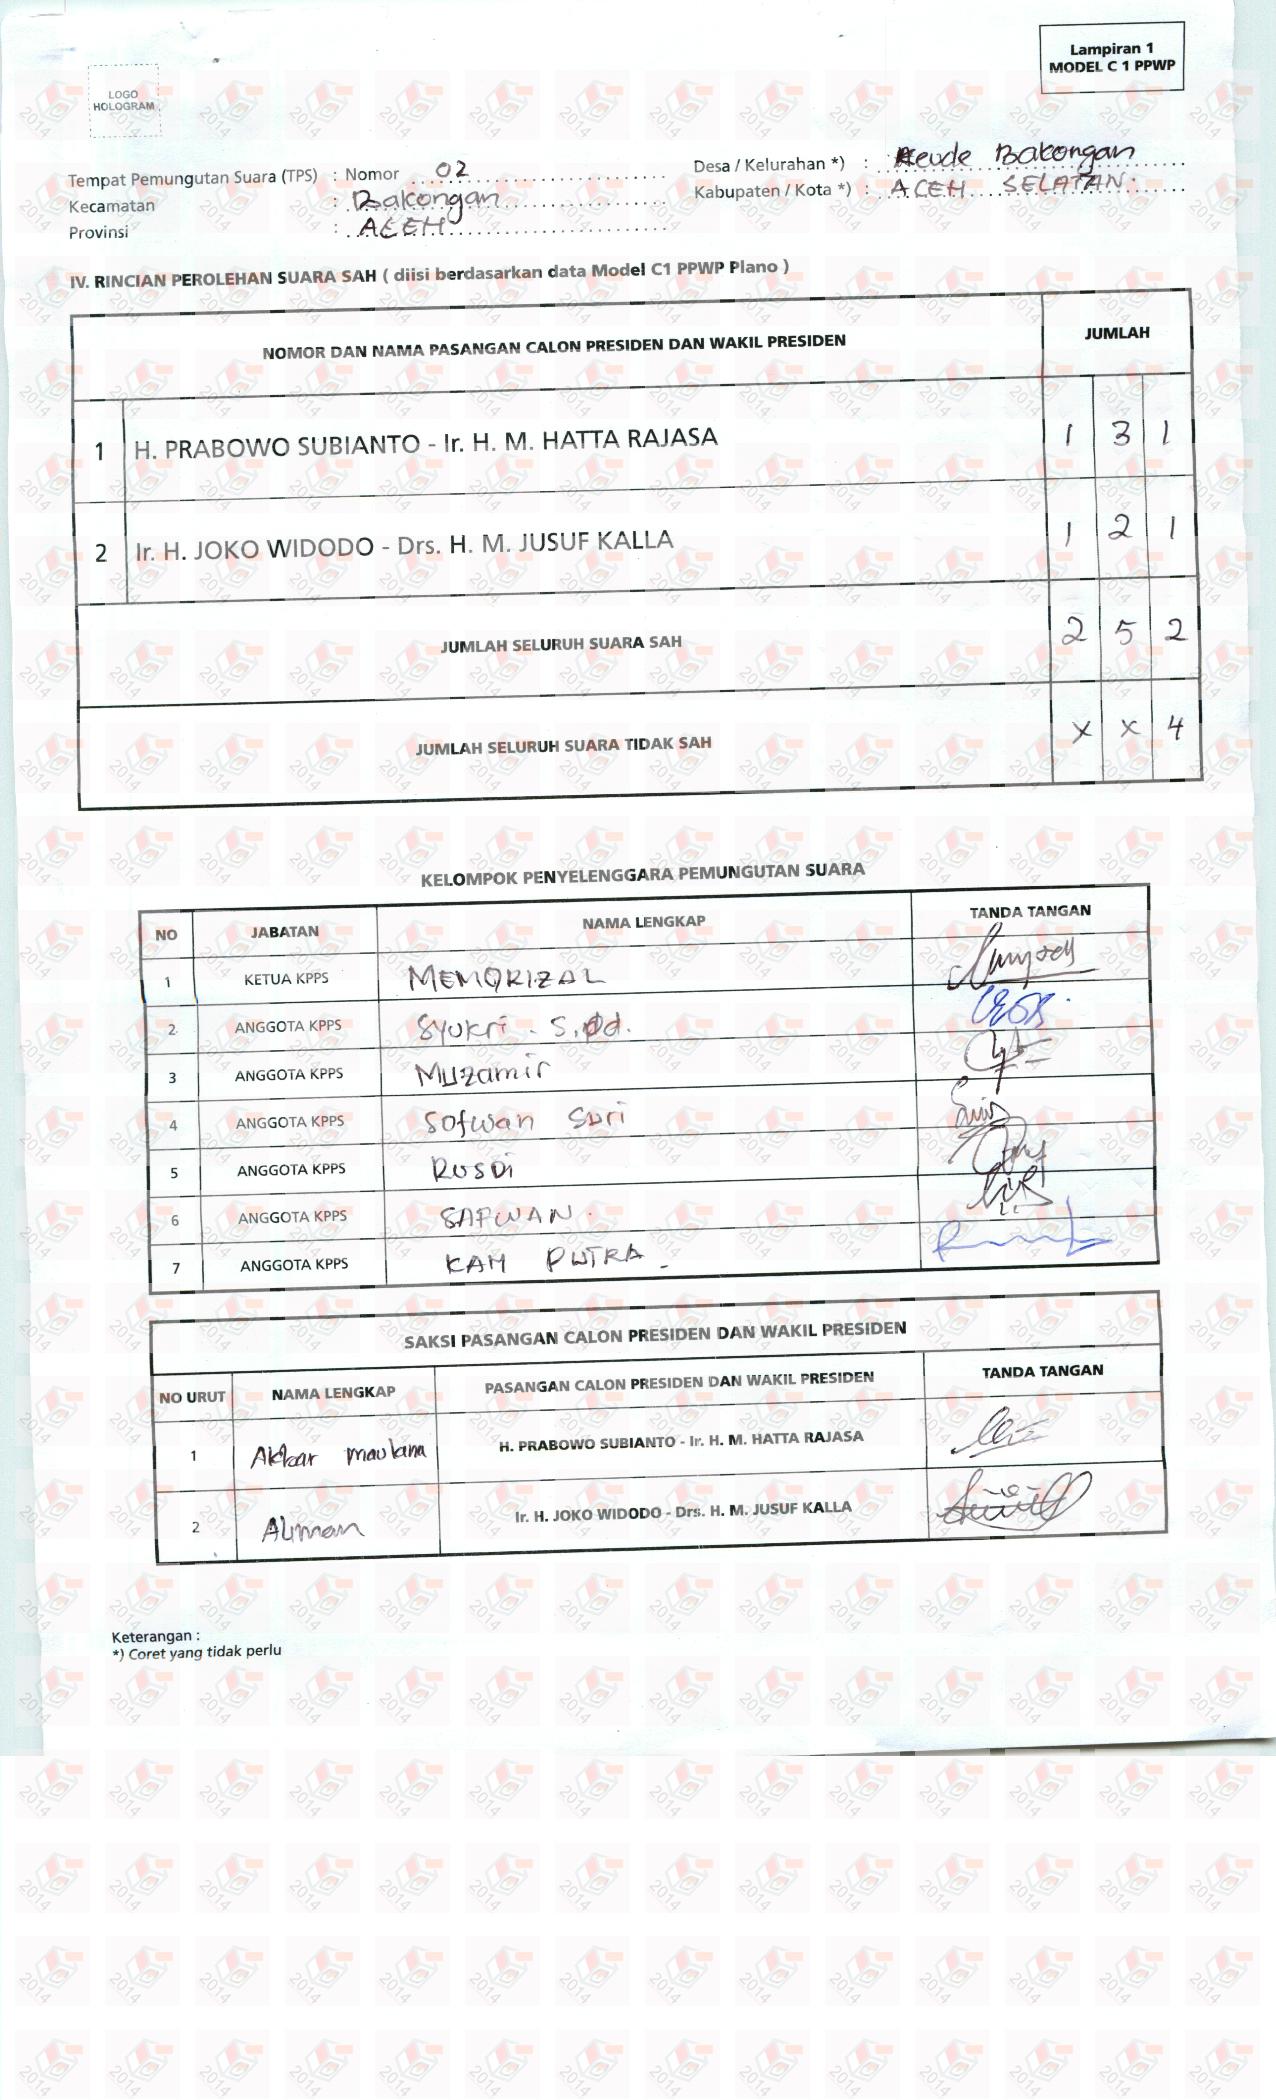 Lampiran 1
MODEL C 1 PPWP
LOGO
HOLOGRAM
Tempat Pemungutan Suara (TPS) : Nomor 02
Kecamatan : Bakongan
Provinsi : ACEH
Desa / Kelurahan *) : Keude Bakongan
Kabupaten / Kota *) : ACEH SELATAN.
IV. RINCIAN PEROLEHAN SUARA SAH ( diisi berdasarkan data Model C1 PPWP Plano )
NOMOR DAN NAMA PASANGAN CALON PRESIDEN DAN WAKIL PRESIDEN JUMLAH
1 H. PRABOWO SUBIANTO - Ir. H. M. HATTA RAJASA 1 3 1
2 Ir. H. JOKO WIDODO - Drs. H. M. JUSUF KALLA 1 2 1
JUMLAH SELURUH SUARA SAH 2 5 2
JUMLAH SELURUH SUARA TIDAK SAH X X 4
KELOMPOK PENYELENGGARA PEMUNGUTAN SUARA
NO JABATAN NAMA LENGKAP TANDA TANGAN
1 KETUA KPPS MEMORIZAL
2 ANGGOTA KPPS Syukri . S.pd.
3 ANGGOTA KPPS Muzamir
4 ANGGOTA KPPS Sofwan Suri
5 ANGGOTA KPPS RUSDi
6 ANGGOTA KPPS SAPWAN.
7 ANGGOTA KPPS KAM PUTRA
SAKSI PASANGAN CALON PRESIDEN DAN WAKIL PRESIDEN
NO URUT NAMA LENGKAP PASANGAN CALON PRESIDEN DAN WAKIL PRESIDEN TANDA TANGAN
1 Akbar maulana H. PRABOWO SUBIANTO - Ir. H. M. HATTA RAJASA
2 Aliman Ir. H. JOKO WIDODO - Drs. H. M. JUSUF KALLA
Keterangan :
*) Coret yang tidak perlu
2014